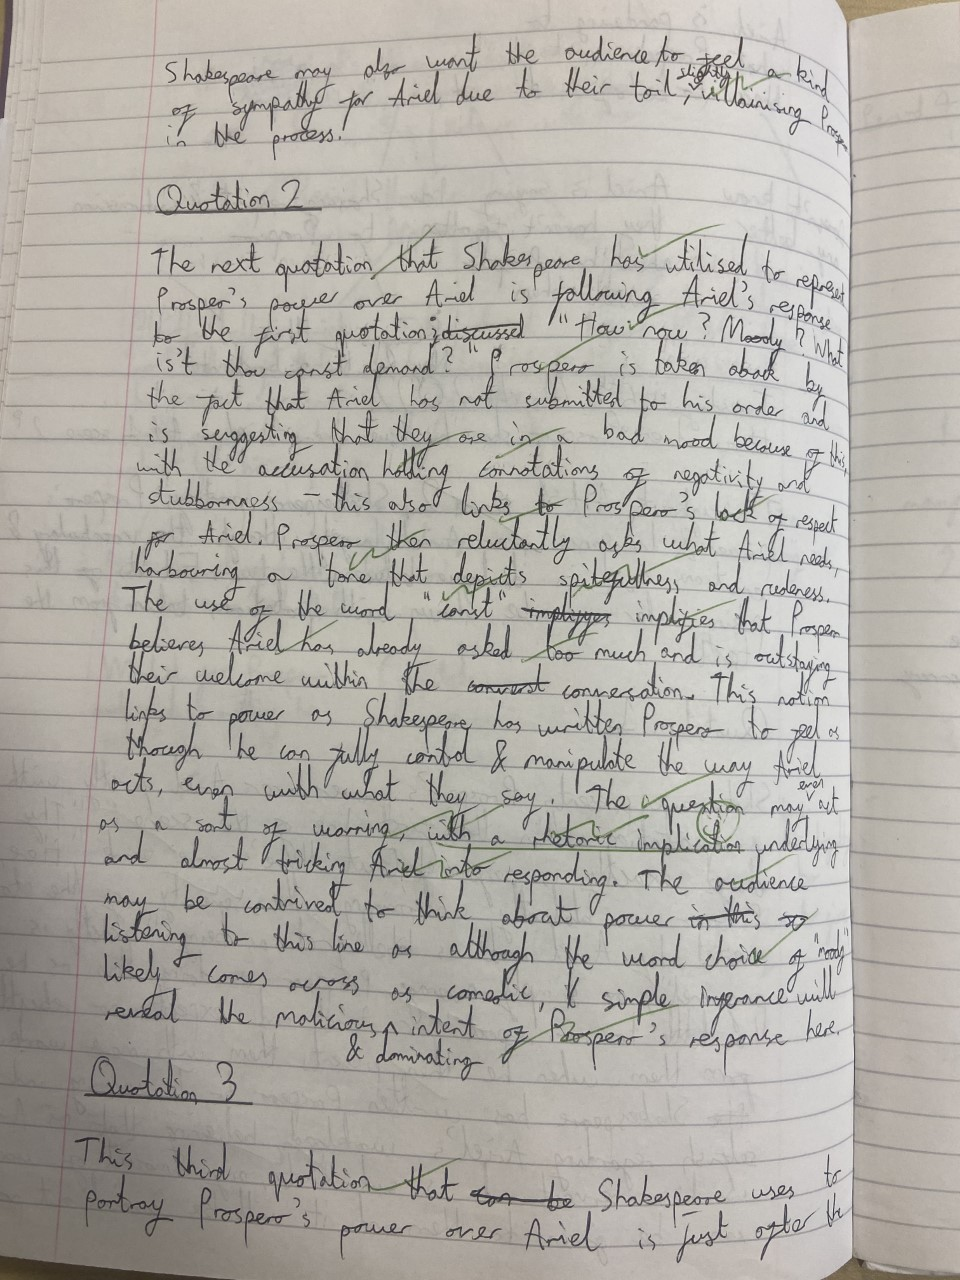 Shakespeare may also want the audience to feel a kind
of sympathy for Ariel due to their toil, slightly villainising Prospero
in the process.
Quotation 2
The next quotation that Shakespeare has utilised to represent
Prosper's power over Ariel is following Ariel's response
to the first quotation: discussed "How now? Moody? What
is't thou canst demand?" Prospero is taken aback by
the fact that Ariel has not submitted to his order and
is suggesting that they are in a bad mood because of this,
with the accusation holding connotations of negativity and
stubbornness - this also links to Prospero's lack of respect
for Ariel. Prospero then reluctantly asks what Ariel needs,
harbouring a tone that depicts spitefullness and rudeness.
The use of the word "canst" implifies that Prospero
believes Ariel has already asked too much and is outstaying
their welcome within the conversation. This notion
links to power as Shakespeare has written Prospero to feel as
though he can fully control & manipulate the way Ariel
acts, even with what they say. The question may even act
as a sort of warning, with a rhetoric implication underlying
and almost tricking Ariel into responding. The audience
may be contrived to think about power in this so
listening to this line as although the word choice of "moody"
likely comes across as comedic, simple ingerance will
reveal the malicious & dominating intent of Prospero's response here.
Quotation 3
This third quotation that can be Shakespeare uses to
portray Prospero's power over Ariel is just after the